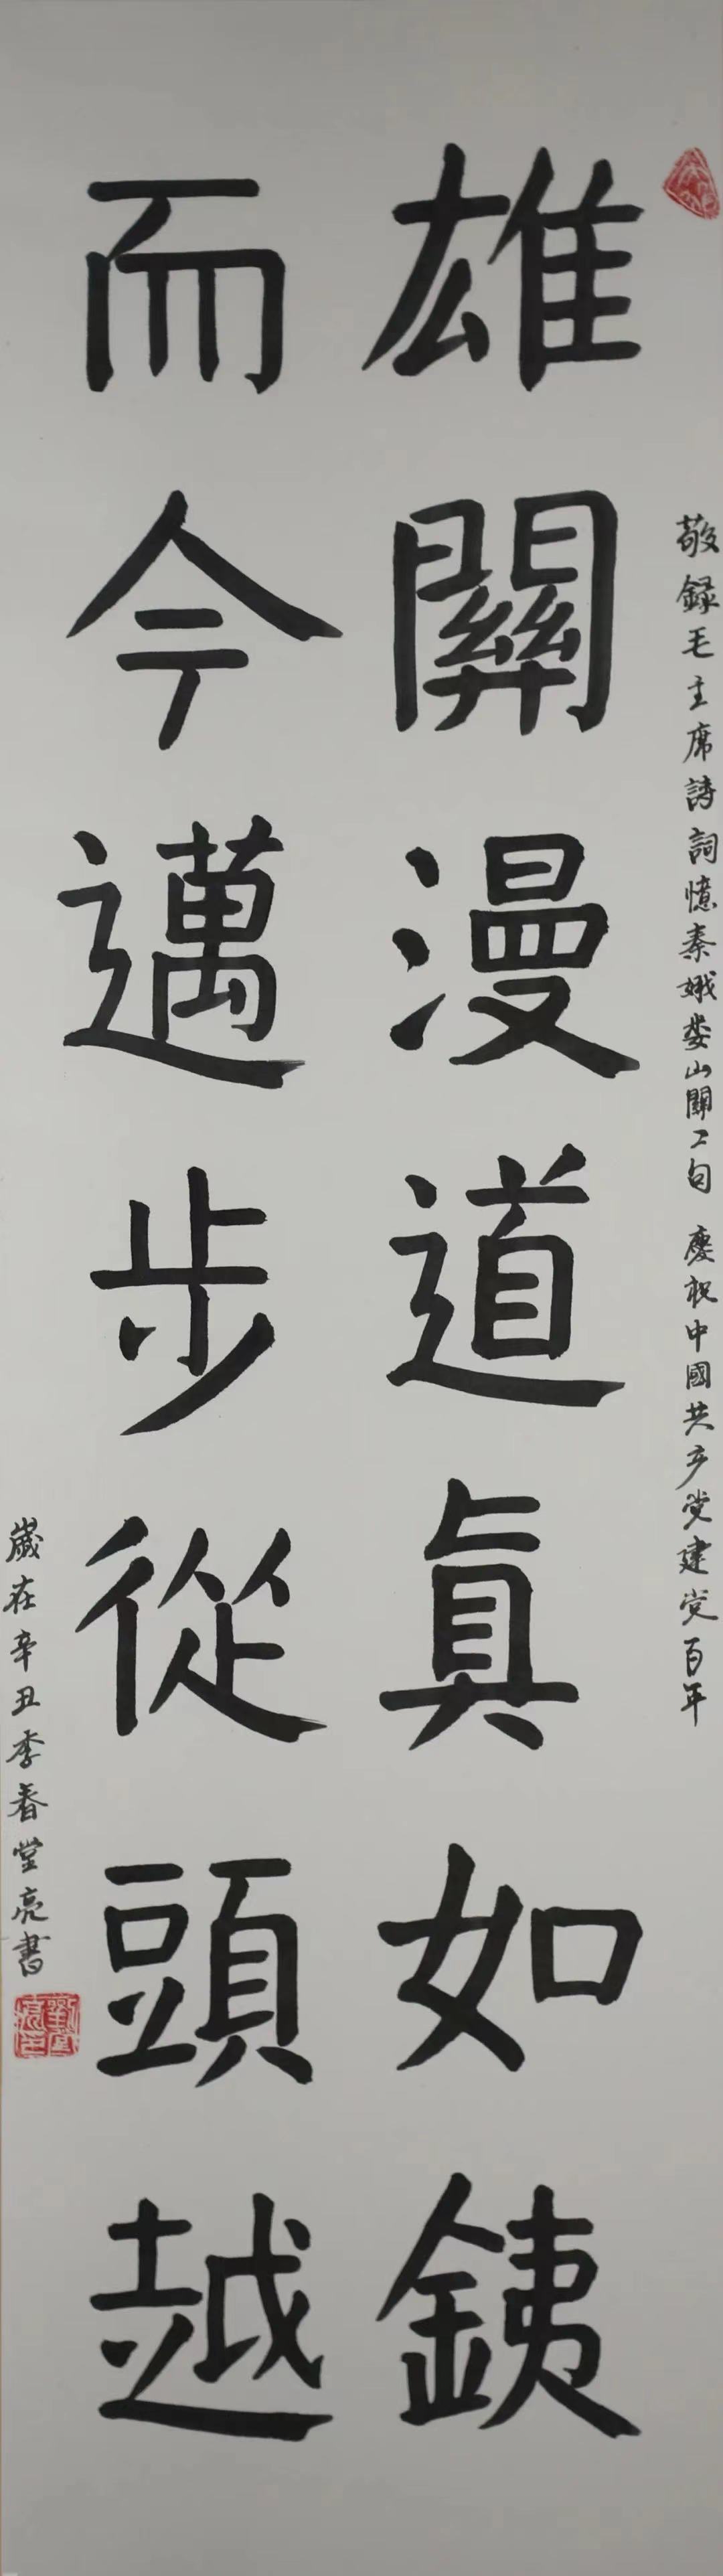 敬録毛主席詩詞憶秦娥婁山關二句 慶祝中國共产党建党百年
雄關漫道真如銕
而今邁步從頭越
歲在辛丑季春堂亮書